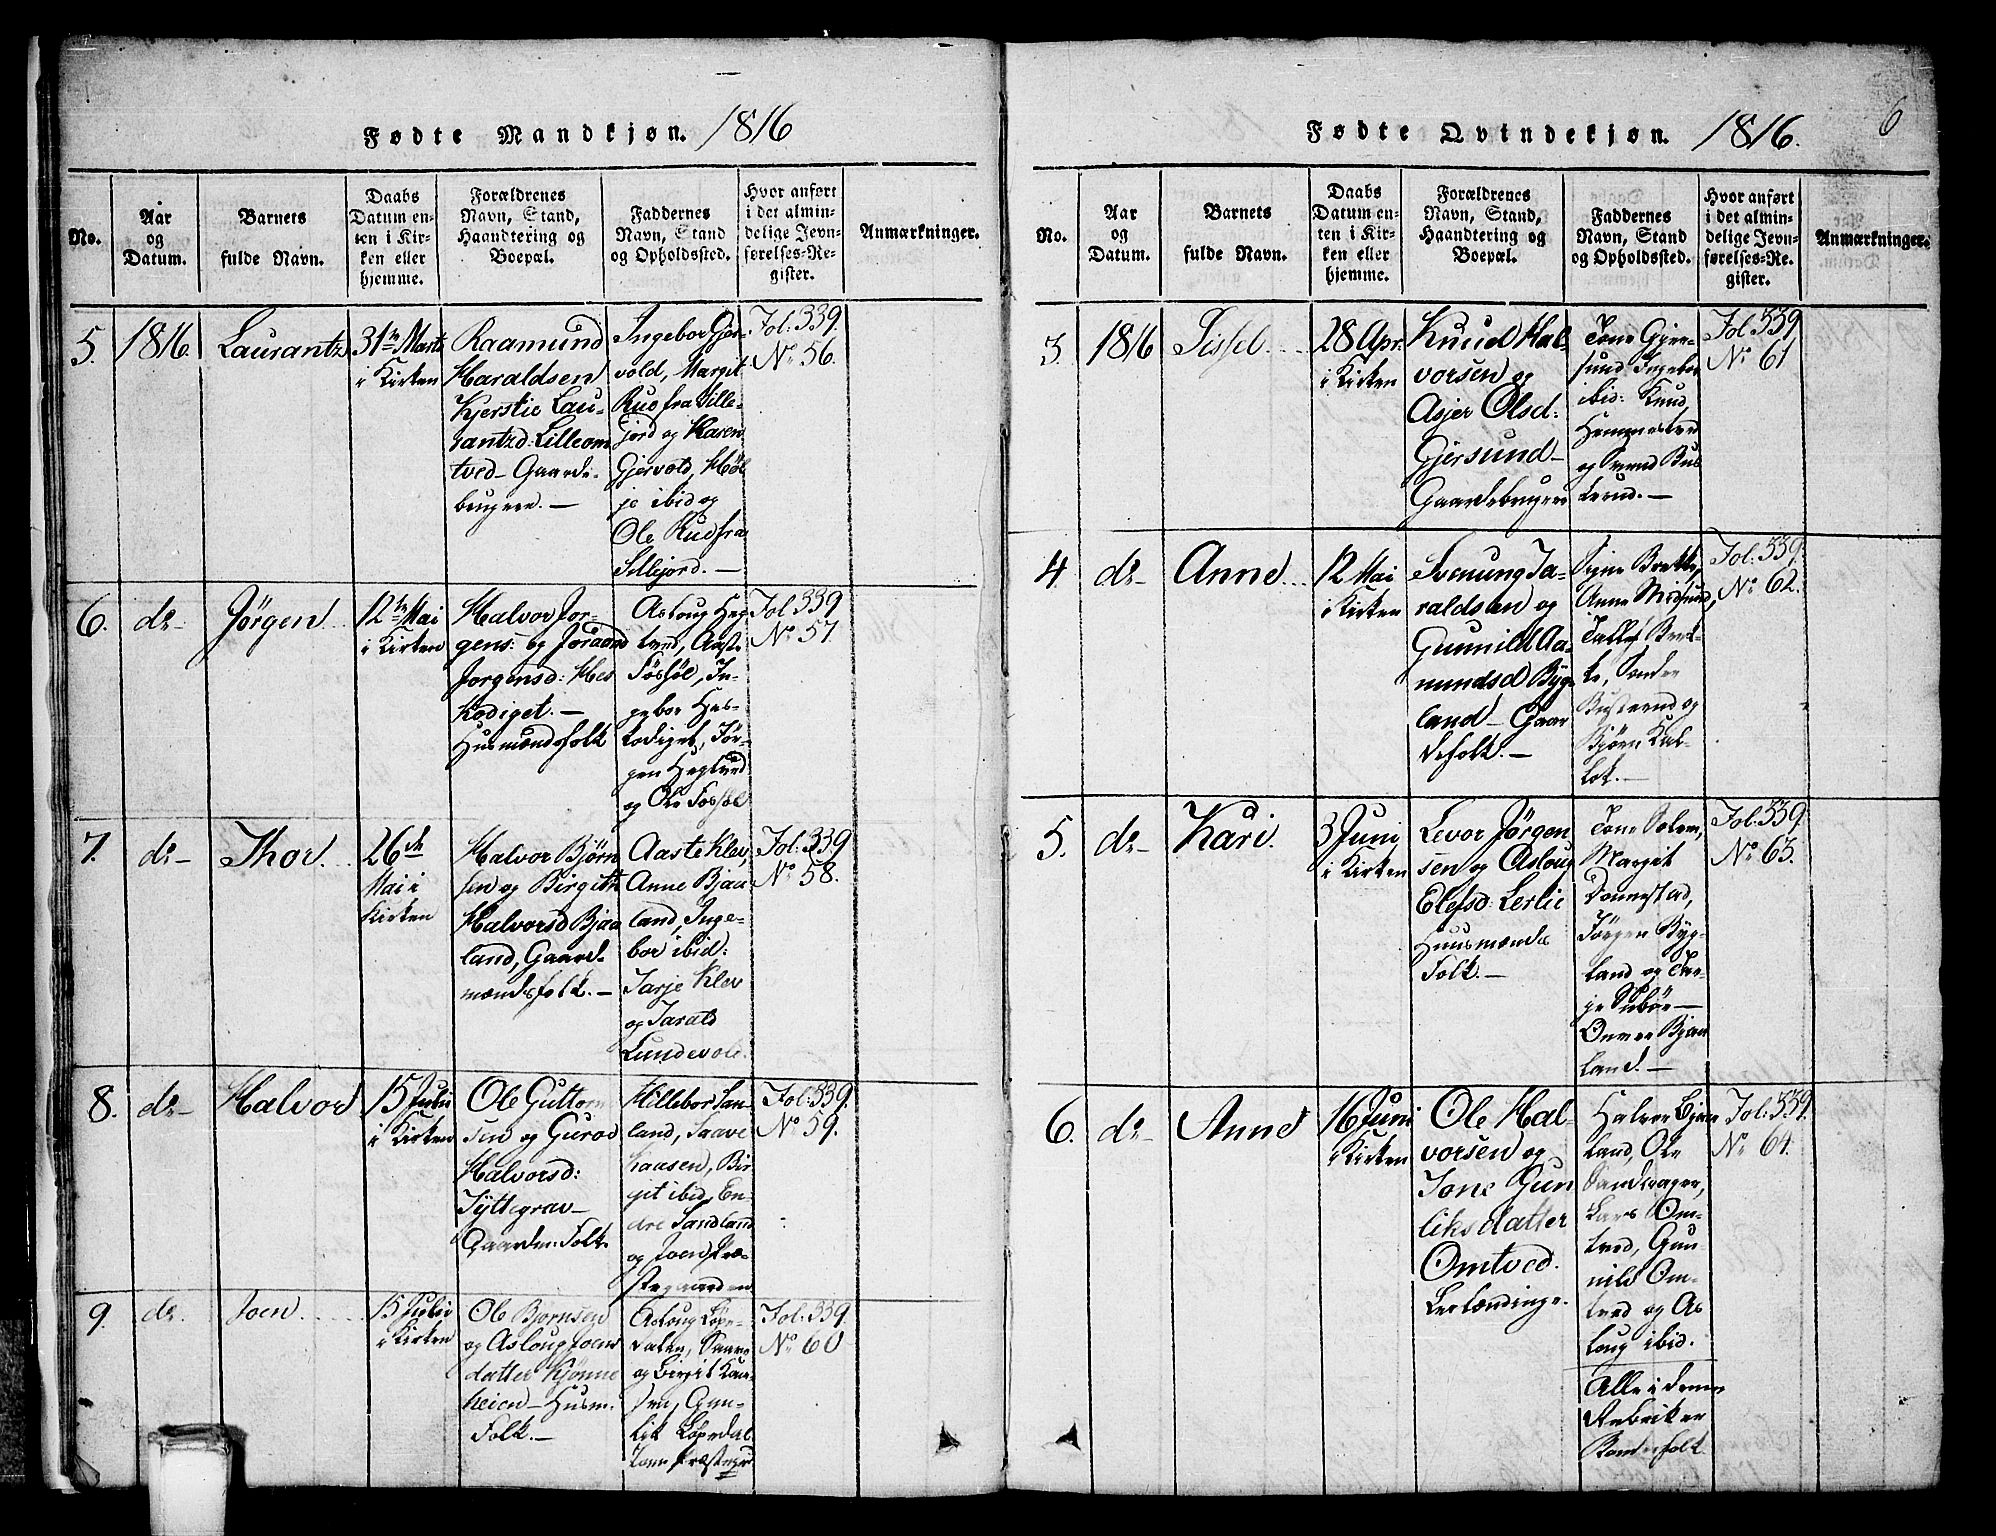 Fødte Mandkjøn. 1816
No.
Aar
og
Datum.
Barnets
fulde Navn.
Daabs
Datum en-
ten i Kir-
ken eller
hjemme.
Forældrenes
Navn, Stand,
Haandtering og
Boepæl.
Faddernes
Navn, Stand
og Opholdssted.
Hvor anført
i det almin-
delige Jevn-
førelses-Re-
gister.
Anmærkninger.
5.
1816.
Laurantz
31te Marts
i Kirken
Raamund
Haraldsen
Kjerstie Lau-
rantzd: Lilleom
tved- Gaard-
brugere. —
Ingebor Gjer-
vold, Margit
Rud fra Sille-
jord og Karen
Gjervold, Høl
je ibid og
Ole Rud fra
Sillejord. —
Fol: 339.
No 56.
6.
do-
Jørgen
12te Mai
i Kirken
Halvor Jor-
gens: og Joraand
Jorgensd: Hes
kodiget. —
Husmændsfolk
Aasloug Heg
tved, Aaste
Fossøl, In-
gebor Hes-
kodiget, Jør-
gen Hegtved
og Ole Fossøl
Fol 339
No 57
7.
do-
Thor.
26de
Mai i
Kirken
Halvor Bjørn
sen og Birgith
Halvorsd Bjaa
land, Gaard-
mændsfolk. —
Aaste Klev,
Anne Bjaa
land, Inge-
bor ibid:
Tarje Klev
og Tarald
Lundevold.
Fol: 339
No 58.
8.
do-
Halvor
15 Julii
i Kirken
Ole Guttorm
sen og Guroe
Halvorsd:
Tyttegrav-
Gaardm: Folk.
Hillebor San-
land, Saave
Kaasen, Bir
git ibid, En-
dre Sandland
og Joen Præ-
stegaarden
Fol: 339.
No 59.
9.
do.
Joen
15 Julii
i Kirken
Ole Bjornsen
og Asloug Joens
datter Kjønne
heien- Husm.
Folk. —
Asloug Løpe-
dalen, Saave
og Birgit Kaa-
sen, Gun-
lik Løpedal
Fol: 339.
No 60
Fødte Qvindekjøn. 1816.
6
No.
Aar
og
Datum.
Barnets
fulde Navn.
Daabs
Datum en-
ten i Kir-
ken eller
hjemme.
Forældrenes
Navn, Stand,
Haandtering og
Boepæl.
Faddernes
Navn, Stand
og Opholdssted.
Hvor anført
i det almin-
delige Jevn-
førelses-Re-
gister.
Anmærkninger.
3.
1816
Sissel.
28 Apr:
i Kirken
Knud Hal-
vorsen og
Asjer Olsd:
Gjersund-
Gaardebrugere
Tone Gjer-
sund, Ingebor
ibid: Knud
Hemmestved
og Svend Bus
terud. —
Fol: 339
No 61
4.
do-
Anne
12 Mai
i Kirken
Svenung Ta-
raldsen og
Gunnild Aa-
mundsd Byg-
land- Gaar
defolk. —
Signe Brekke,
Anne Midsund,
Tallef Brek-
ke, Sondre
Busterud og
Bjørn Kal-
lok. —
Fol: 339.
No 62.
5.
do-
Kari.
3 Juni
i Kirken
Levor Jørgen
sen og Asloug
Elefsd: Lerlie
Huusmænds
Folk. —
Tone Solem,
Margit
Donnestad,
Jörgen Byg-
land og Tar-
je Subøe —
Bjaa
land. —
Fol: 339.
No 63.
6.
do-
Anne
16 Juni
i Kirken
Ole Hal-
vorsen og
Tone Gun
liksdatter
Omtved.
Halvor Bjaa
land, Ole
Sandvager,
Lars Om-
tved, Gun-
nild Om-
tved og As
loug ibid.
Alle i denne
Rubrik er
Bondefolk
Fol: 339.
No 64.